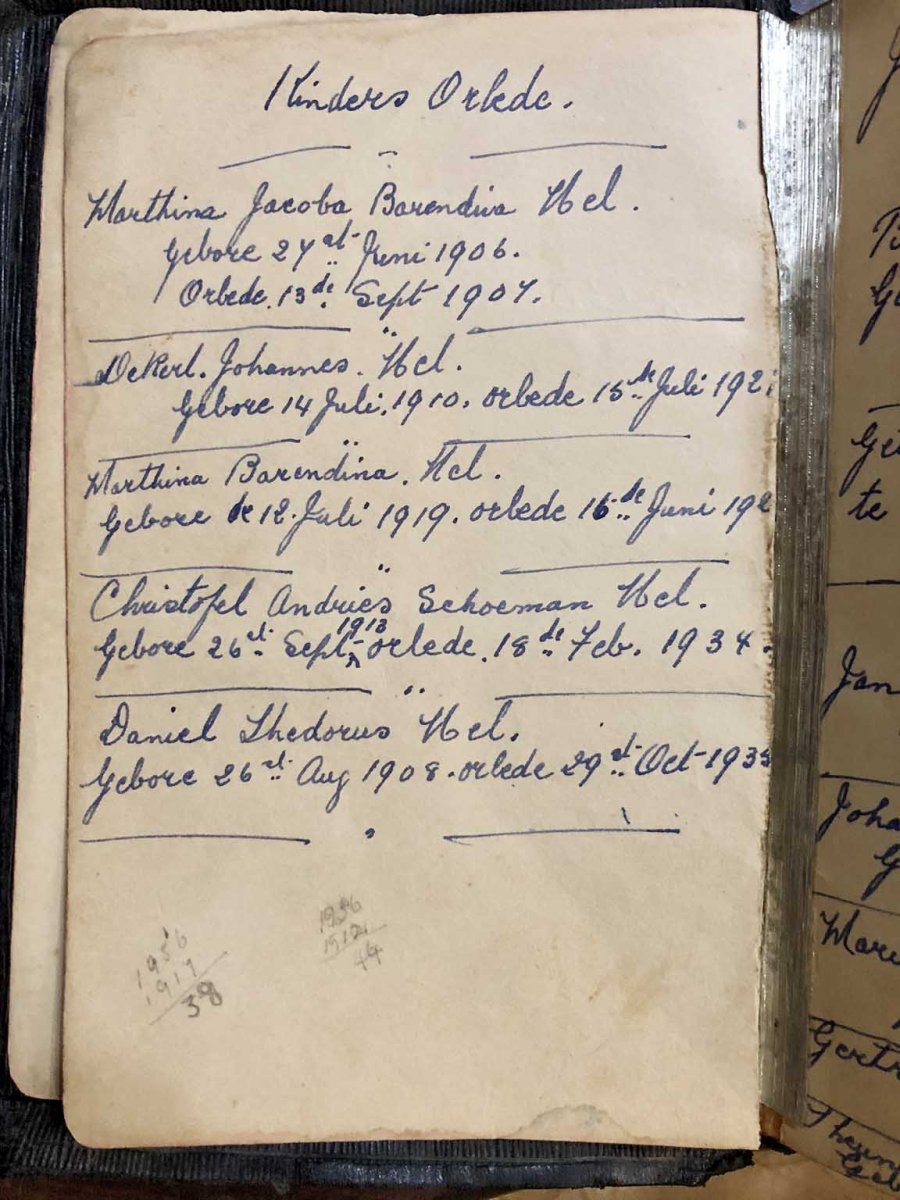 Kinders Orlede.
Marthina Jacoba Barendina Nel.
Gebore 27st Juni 1906.
Orlede 13de Sept 1907.
Johannes. Nel.
Gebore 14 Juli. 1910. orlede 15de Juli 192
Marthina Barendina. Nel.
Gebore de 12. Juli 1919. orlede 16de Juni 192
Christofel Andries Schoeman Nel.
1913
Gebore 26st Sept orlede 18de Feb. 1934.
Daniel Thedorus Nel.
Gebore 26st Aug 1908. orlede 29st Oct 193
1956
1956
44
38
te
Jan
Joha
G